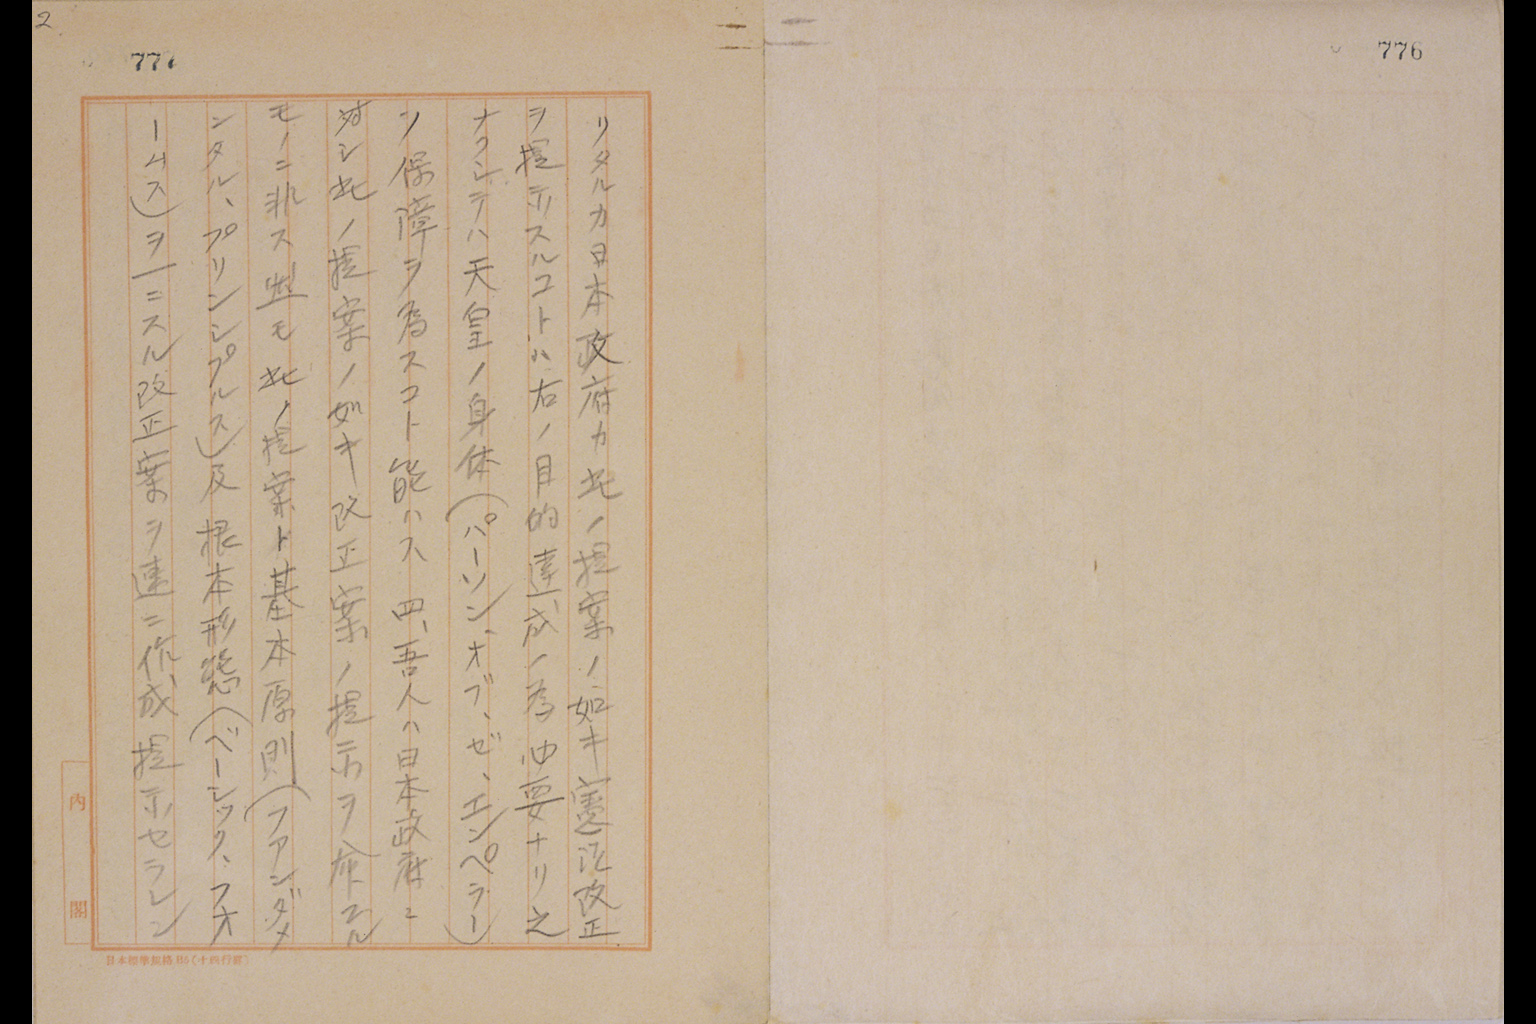 776
2
777
リタルカ日本政府カ此ノ提案ノ如キ憲法改正
ヲ提示スルコトハ右ノ目的達成ノ為必要ナリ之
ナクシテハ天皇ノ身体(パーソン、オブ、ゼ、エンペラー)
ノ保障ヲ為スコト能ハス 四、吾人ハ日本政府ニ
対シ此ノ提案ノ如キ改正案ノ提示ヲ命スル
モノニ非ス然レトモ此ノ提案ト基本原則(ファンダメ
ンタル、プリンシプルス)及根本形態(ベーシック、フォ
ームス)ヲ一ニスル改正案ヲ速ニ作成提示セラレン
内閣
日本標準規格B5(十四行罫)